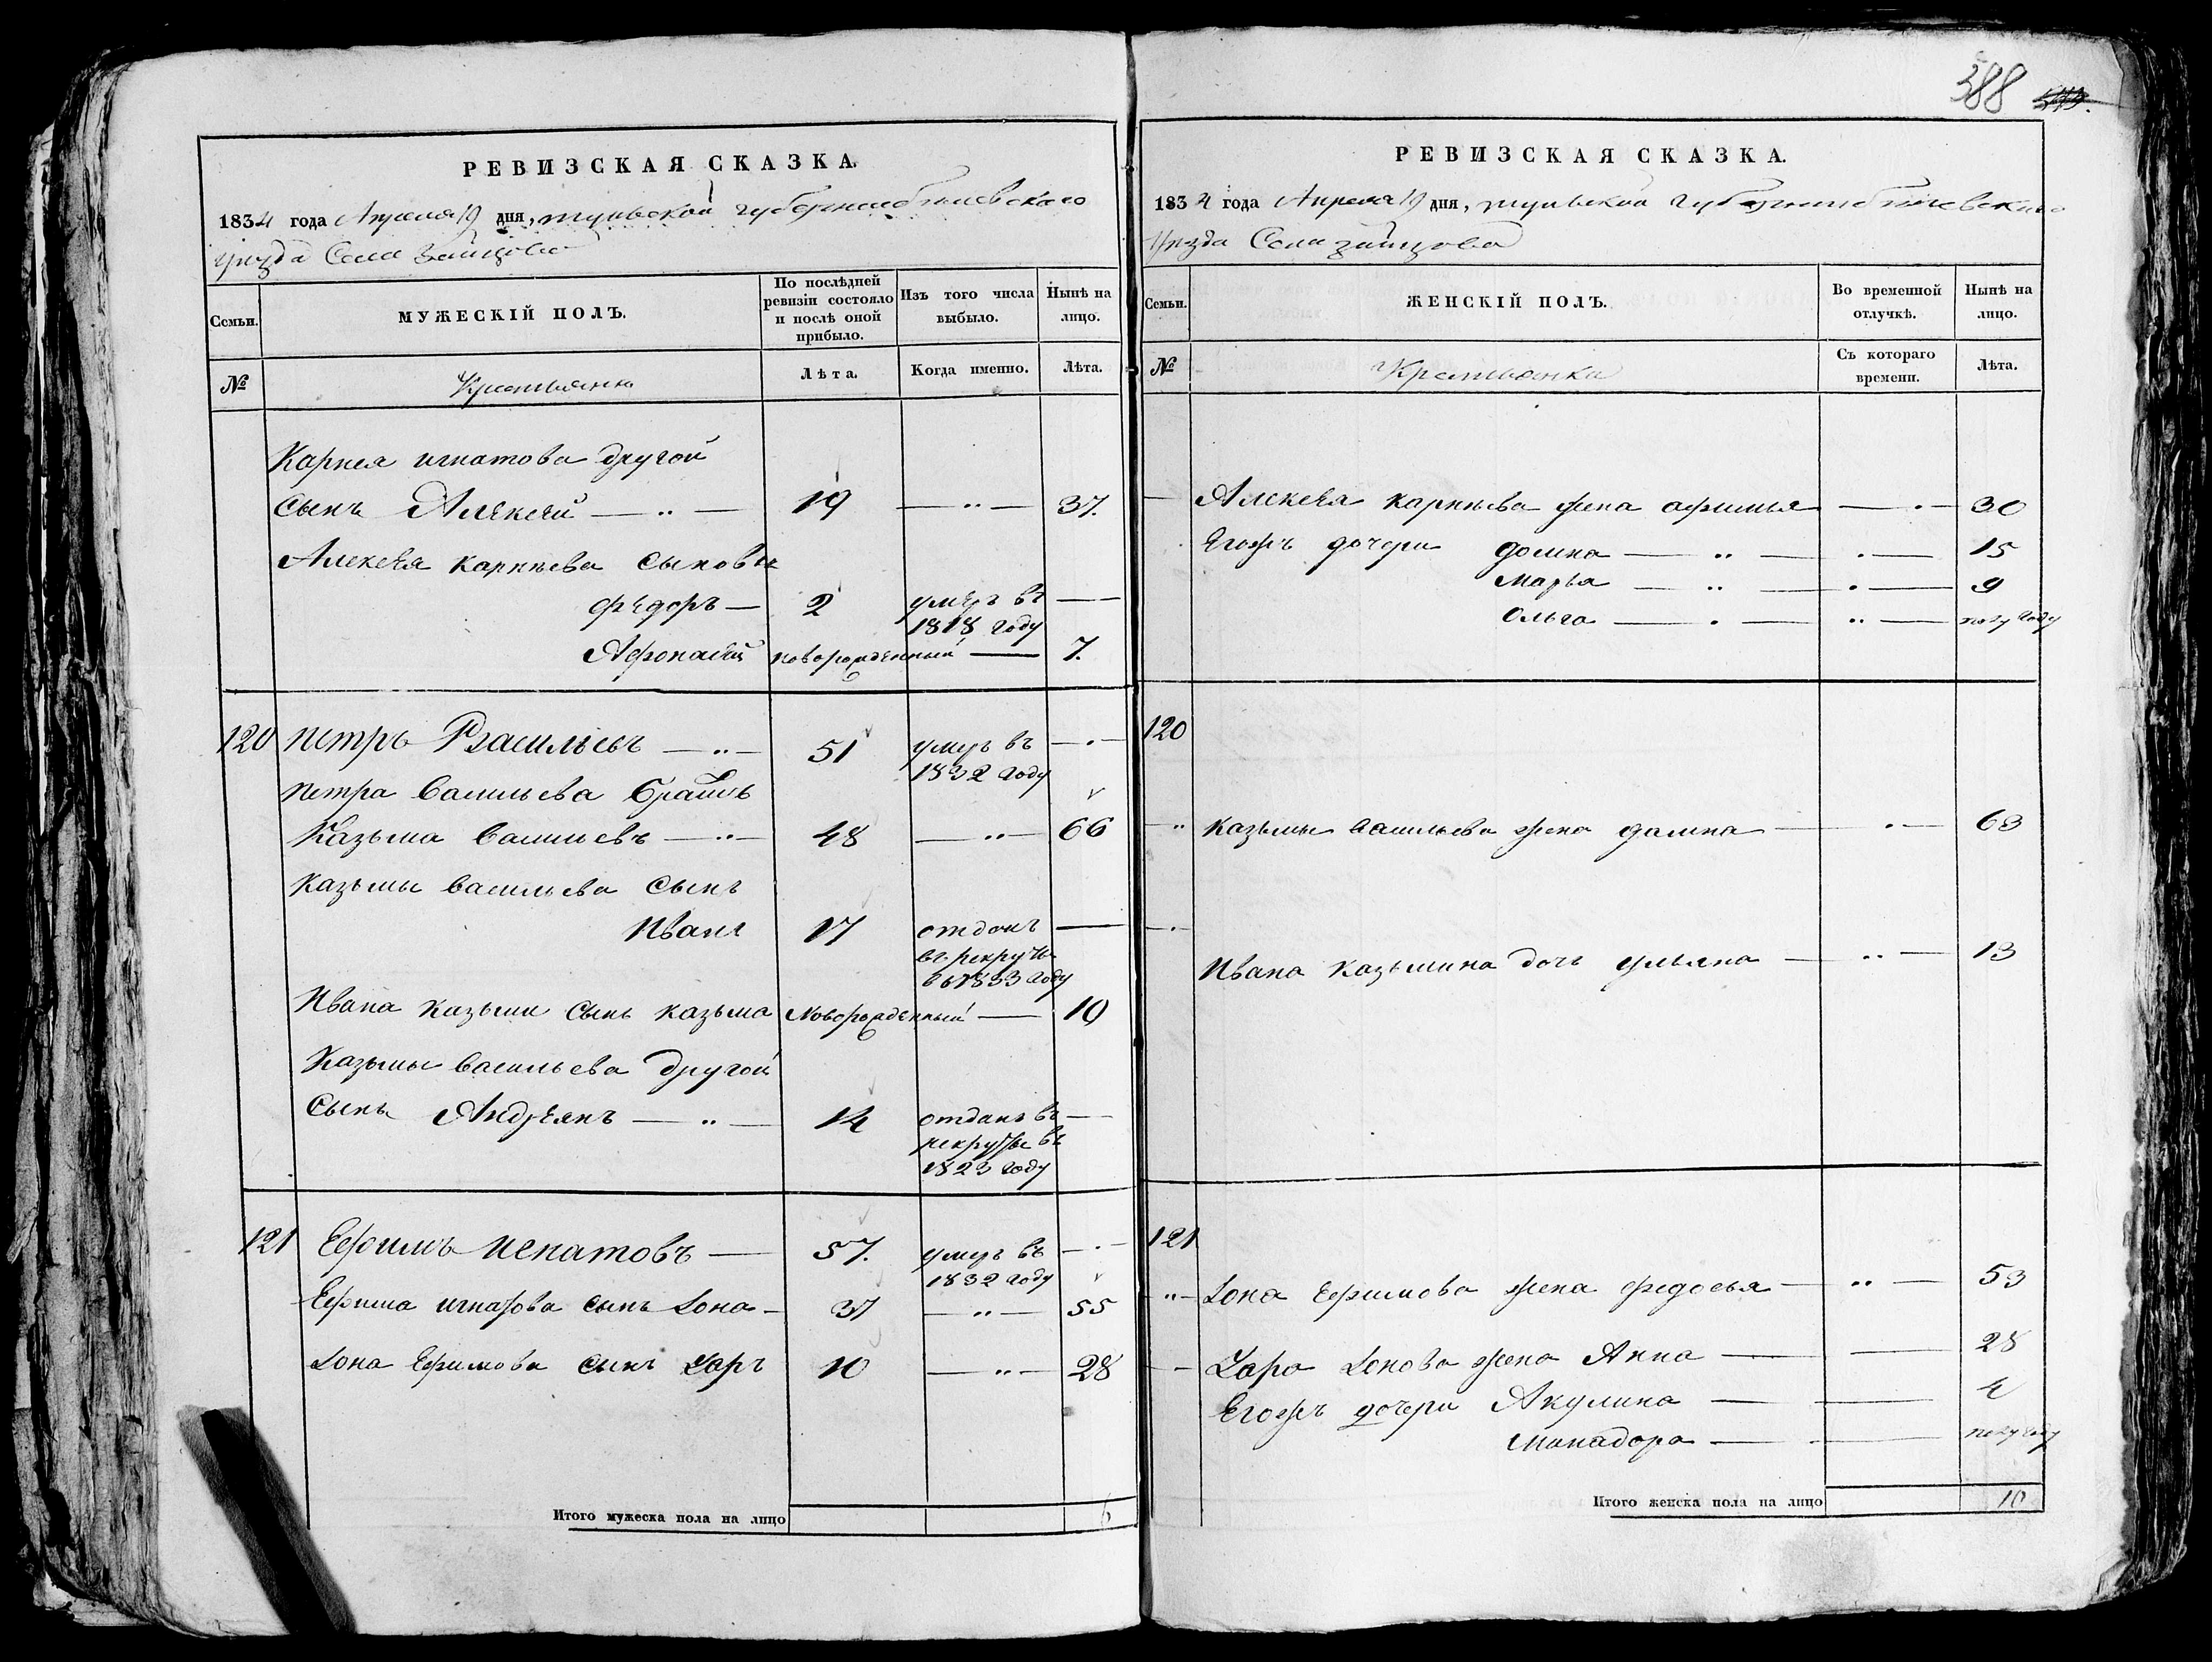 388
РЕВИЗСКАЯ СКАЗКА.
1834 года Апреля 19 дня, тульской губернии белевскаго
уезда Села Зайцова
Семьи.
МУЖЕСКІЙ ПОЛЪ.
По послѣдней ревизіи состояло и послѣ оной прибыло.
Изъ того числа выбыло.
Нынѣ на лицо.
№
Крестьяня
Лѣта.
Когда именно.
Лѣта.
Карнея игнатова другой
сынъ Алексей — 19 — 37.
Алексея карнеева сыновья
федоръ — 2 умеръ въ —
1818 году
Афонасей новорожденный — 7.
120 петръ Васильевъ — 51 умеръ въ —
1832 году
петра васильева братъ
Казьма васильевъ — 48 — 66
казьмы васильева сынъ
Иванъ 17 отданъ —
въ рекруты
въ 1833 году
Ивана казьми сынъ казьма новорожденный — 10
Казьмы васильева другой
сынъ Андреянъ — 14 отданъ въ —
рекруты въ
1823 году
121 Ефимъ игнатовъ — 57. умеръ въ —
1832 году
Ефима игнатова сынъ Iона — 37 — 55
Iона Ефимова сынъ Uаръ 10 — 28
Итого мужеска пола на лицо 6
РЕВИЗСКАЯ СКАЗКА.
1834 года Апреля 19 дня, тульской губернии белевскаго
уезда Села зайцова
Семьи.
ЖЕНСКІЙ ПОЛЪ.
Во временной отлучкѣ.
Нынѣ на лицо.
№
Крестьянки
Съ котораго времени.
Лѣта.
Алексея карнеева жена афимья — 30
Егожъ дочери домна — 15
марья — 9
Ольга — полугоду
120
казьмы васильева жена домна — 63
Ивана казьмина дочь ульяна — 13
121
Iона Ефимова жена федосья — 53
Iонова жена Анна — 28
Егожъ дочери Акулина — 4
минадора — полугоду
Итого женска пола на лицо 10